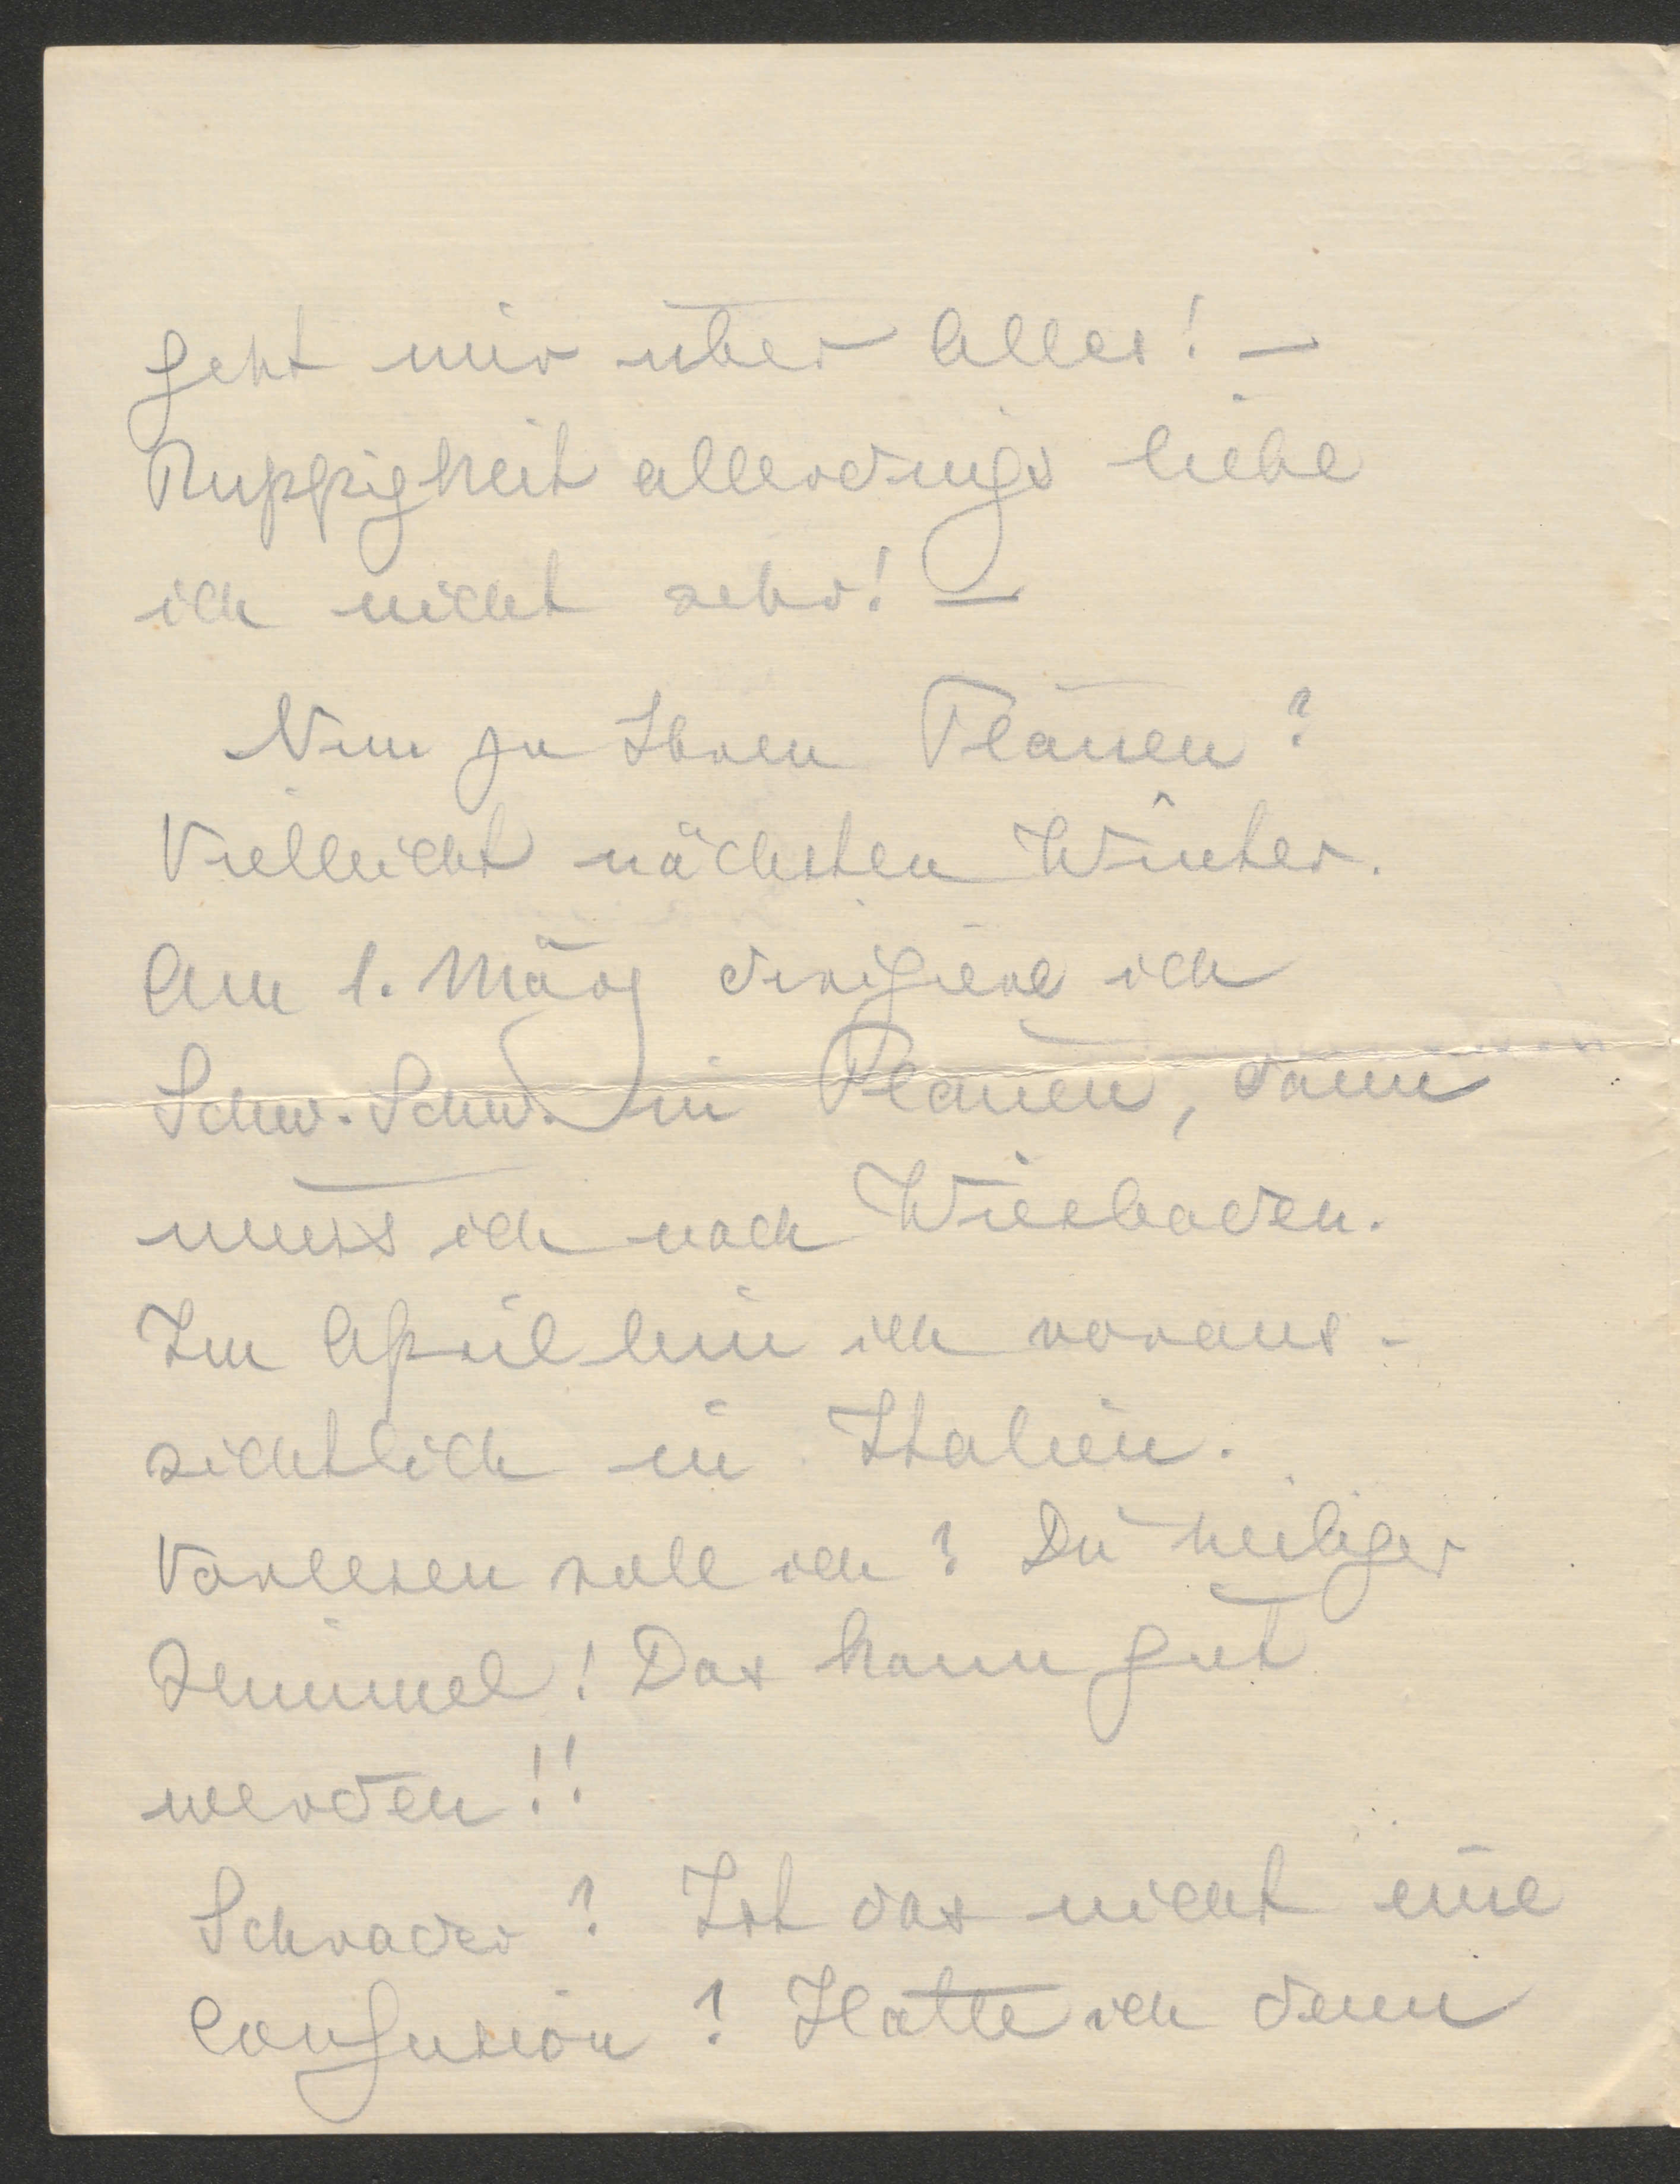 geht mir über Alles! —
Ruppigkeit allerdings liebe
ich nicht sehr! —
Nun zu Ihren Plänen?
Vielleicht nächsten Winter.
Am 1. März dirigiere ich
Schw. Schw. in Plauen, dann
muss ich nach Wiesbaden.
Im April bin ich voraus-
sichtlich in Italien.
Vorlesen soll ich? Du heiliger
Himmel! Das kann gut
werden!!
Schrader? Ist das nicht eine
Confusion? Hatte ich denn